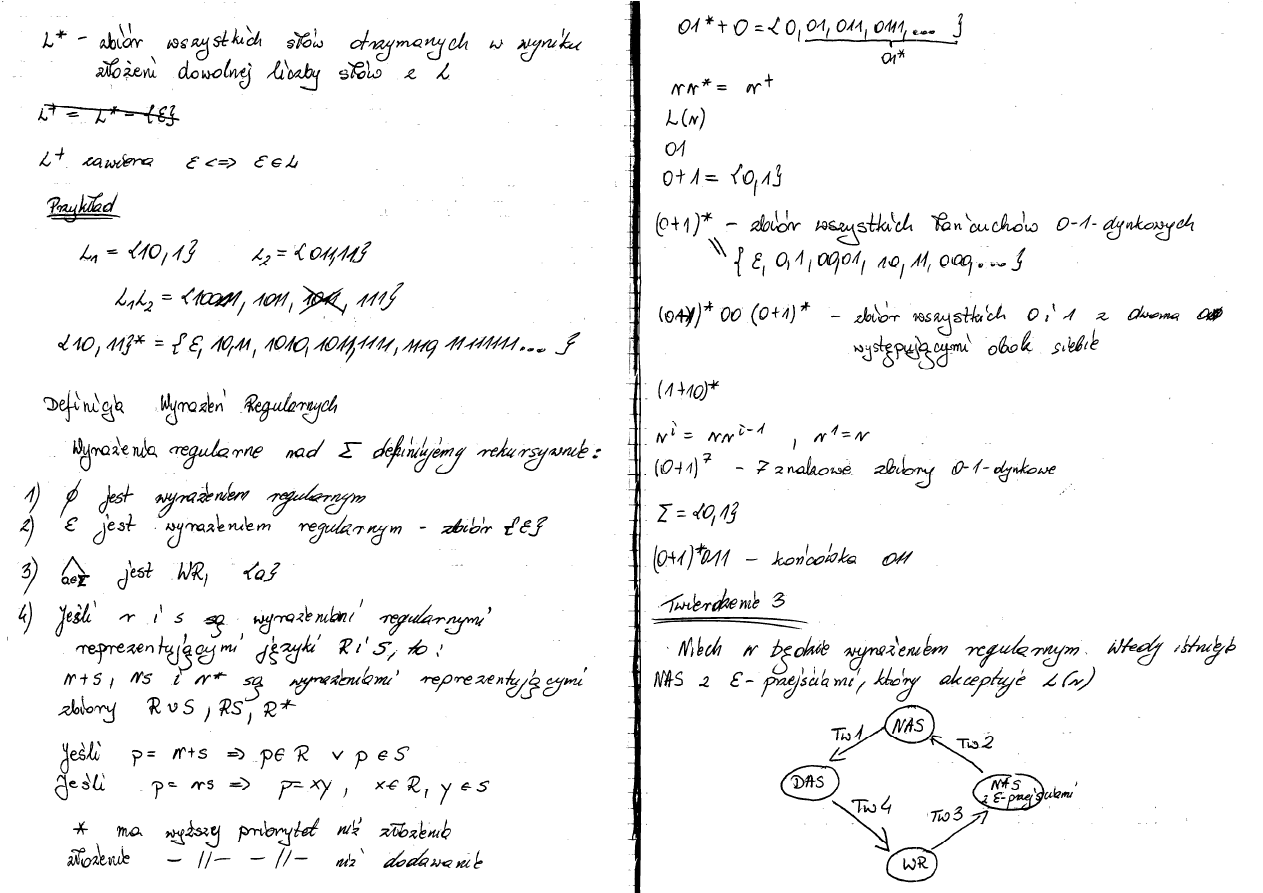 L* - zbiór wszystkich słów otrzymanych w wyniku
złożeń dowolnej liczby słów z L
L⁺ = L* - {ε}
L⁺ zawiera ε <=> ε ∈ L
Przykład
L₁ = {10, 1} L₂ = {011, 11}
L₁L₂ = {10011, 1011, 1011, 111}
{10, 11}* = {ε, 10, 11, 1010, 1011, 1111, 1110, 111111... }
Definicja Wyrażeń Regularnych
Wyrażenia regularne nad Σ definiujemy rekursywnie:
1) ø jest wyrażeniem regularnym
2) ε jest wyrażeniem regularnym - zbiór {ε}
3) a∈Σ jest WR, {a}
4) Jeśli r i s są wyrażeniami regularnymi
reprezentującymi języki R i S, to:
r+s, rs i r* są wyrażeniami reprezentującymi
zbiory R∪S, RS, R*
Jeśli p = r+s => p∈R ∨ p∈S
Jeśli p = rs => p=xy, x∈R, y∈S
* ma wyższy priorytet niż złożenie
złożenie -//- -//- niż dodawanie
01* + 0 = {0, 01, 011, 0111, ... }
01*
rr* = r⁺
L(r)
01
0+1 = {0,1}
(0+1)* - zbiór wszystkich łańcuchów 0-1-dynkowych
{ε, 0, 1, 00, 01, 10, 11, 000, ... }
(0+1)* 00 (0+1)* - zbiór wszystkich 0 i 1 z dwoma
występującymi obok siebie
(1+10)*
rⁱ = rrⁱ⁻¹ , r¹=r
(0+1)⁷ - 7 znakowe zbiory 0-1-dynkowe
Σ = {0,1}
(0+1)*011 - końcówka 011
Twierdzenie 3
Niech r będzie wyrażeniem regularnym. Wtedy istnieje
NAS z ε-przejściami, który akceptuje L(r)
NAS
Tw1 Tw2
DAS NAS
z ε-przejściami
Tw4 Tw3
WR